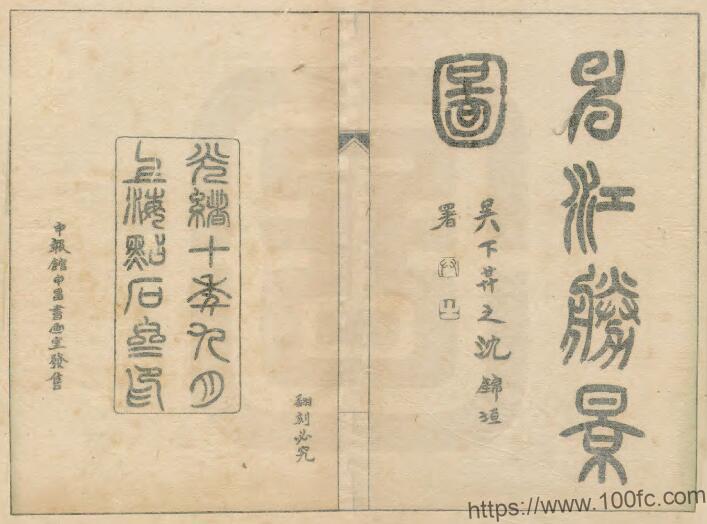 申江勝景
圖
吳下昇之沈錦垣
署
翻刻必究
光緒十年九月
上海點石齋印
申報館申昌書畫室發售
https://www.100fc.com